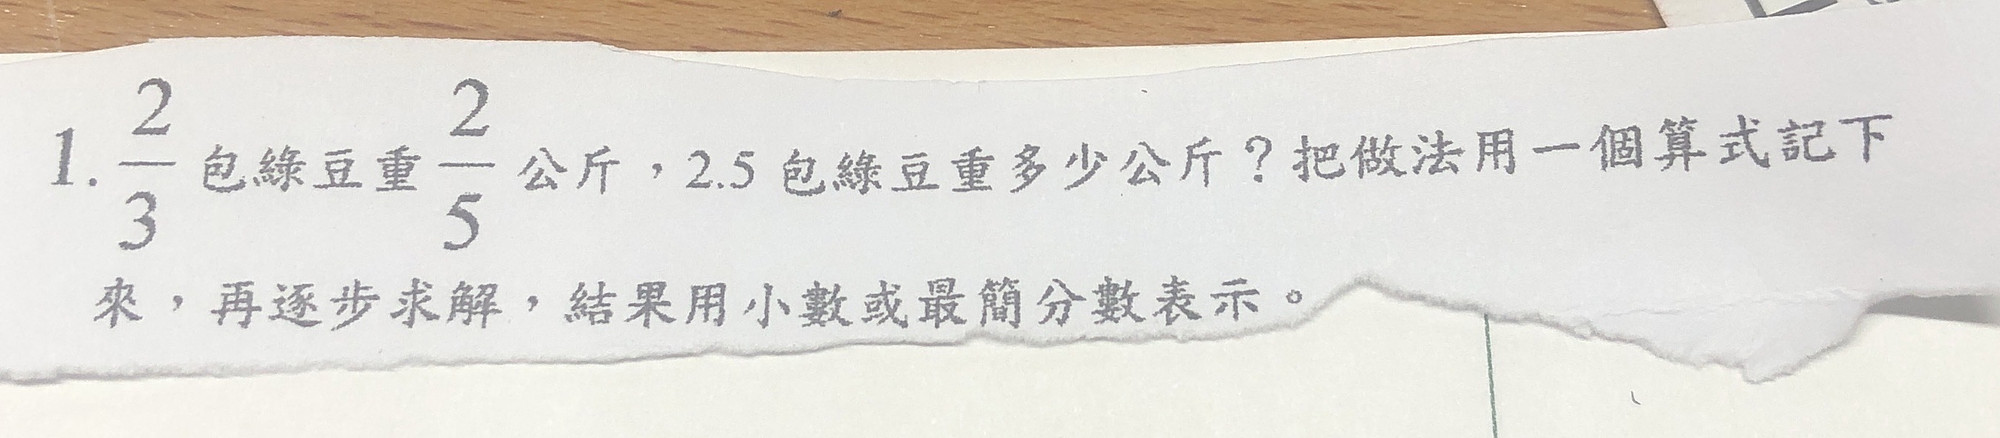 1. 2/3 包綠豆重 2/5 公斤，2.5 包綠豆重多少公斤？把做法用一個算式記下
來，再逐步求解，結果用小數或最簡分數表示。